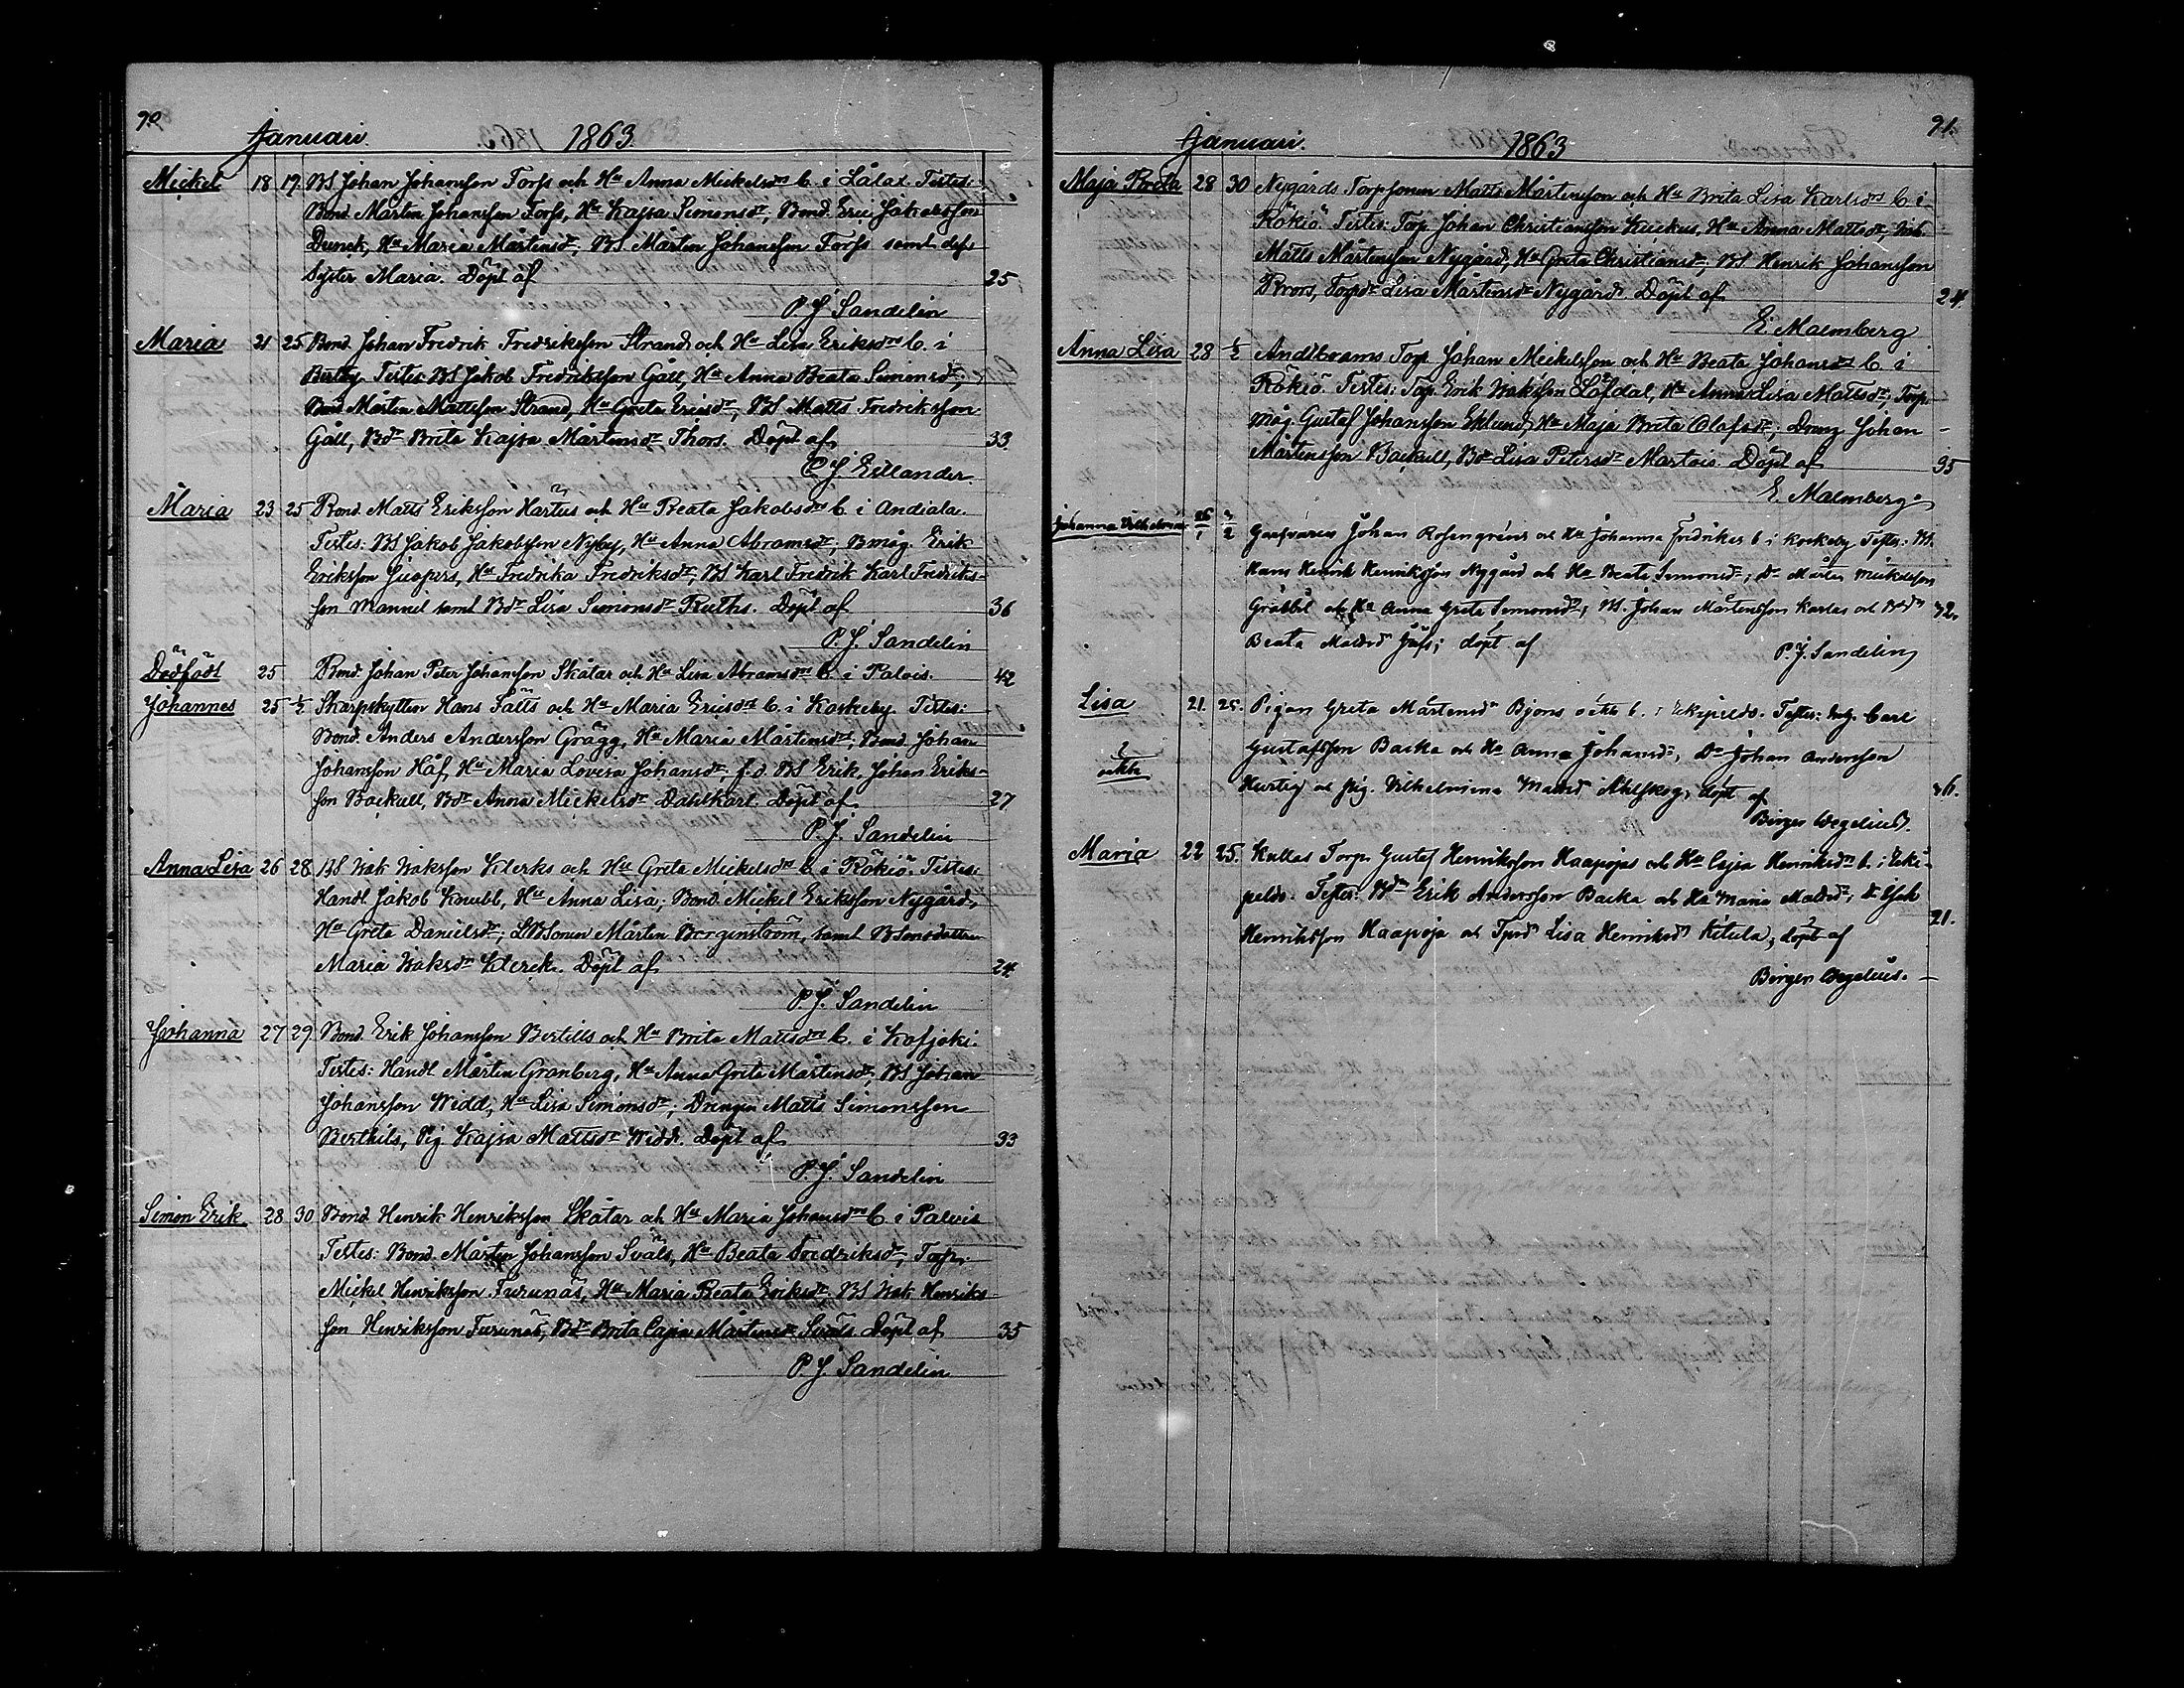 90
Januari. 1863
Mickel 18 19. BS Johan Johansson Forss och Hu Anna Mickelsdr b. i Lålax. Testes:
Bond. Mårten Johansson Forss, Hu Kajsa Simonsdr, Bond. Eric Jakobsson
Dunck, Hu Maria Mårtensdr, BS Mårten Johansson Forss samt dess
Syster Maria. Döpt af 25
P. J. Sandelin
Maria 21 25 Bond. Johan Fredrik Fredriksson Strand och Hu Lisa Eriksdr b. i
Bertby Testes: BS Jakob Fredriksson Gåll, Hu Anna Beata Simonsdr,
Bond Mårten Mattsson Strand, Hu Greta Ericsdr, BS Matts Fredriksson
Gåll, Bdr Brita Kajsa Mårtensdr Thors. Döpt af 33
Estlander
Maria 23 25 Bond. Matts Eriksson Härtus och Hu Beata Jakobsdr b. i Andiala.
Testes: BS Jakob Jakobsson Nyby, Hu Anna Abramsdr, Bmåg. Erik
Eriksson Hu Fredrika Fredriksdr, BS Karl Fredrik Karl Fredriks-
son Mannil samt Bdr Lisa Simonsdr Ruths. Döpt af 36
P. J. Sandelin
Dödfödt 25 Bond. Johan Peter Johansson Skåtar och Hu Lisa Abramsdr b. i Palvis. 42
Johannes 25 1/2 Skarpskytten Hans Fälts och Hu Maria Ericsdr b. i Koskeby. Testes:
Bond. Anders Andersson Grägg, Hu Maria Mårtensdr, Bond. Johan
Johansson Håf, Hu Maria Lovisa Johansdr, f.d. BS Erik Johan Eriks-
son Backull, Bdr Anna Mickelsdr Dahlkarl. Döpt af 27
P. J. Sandelin
Anna Lisa 26 28 BS Isak Isaksson Klerks och Hu Greta Mickelsdr b. i Rökiö. Testes:
Handl Jakob Knubb, Hu Anna Lisa; Bond. Mickel Eriksson Nygård,
Hu Greta Danielsdr; Mårten Bergenström, samt BSonsdottren
Maria Isaksdr Klerck. Döpt af 24
P. J. Sandelin
Johanna 27 29 Bond. Erik Johansson Bertills och Hu Brita Mattsdr b. i Kosjoki.
Testes: Handl Mårten Granberg, Hu Anna Greta Mårtensdr, BS Johan
Johansson Widd, Hu Lisa Simonsdr; Drengen Matts Simonsson
Berthils, Pig. Kajsa Mattsdr Widd. Döpt af 33
P. J. Sandelin
Simon Erik 28 30 Bond. Henrik Henriksson Skåtar och Hu Maria Johansdr b. i Palvis
Testes: Bond. Mårten Johansson Svals, Hu Beata Fredriksdr, Torp.
Mickel Henriksson Furunäs, Hu Maria Beata Eriksdr, BS Isak Henriks-
son Henriksson Furunäs, Bdr Brita Cajsa Mårtensdr Svals Döpt af 35
P. J. Sandelin
91.
Januari. 1863
Maja Brita 28 30 Nygårds Torpsonen Matts Mårtensson och Hu Brita Lisa Karlsdr b. i
Rökiö. Testes: Torp Johan Christiansson Kuckus, Hu Anna Mattsdr,
Matts Mårtensson Nygård, Hu Greta Christiansdr, BS Henrik Johansson
Prors, Torpdr Lisa Mårtensdr Nygård. Döpt af 24.
E. Malmberg
Anna Lisa 28 1/2 Torp Johan Mickelsson och Hu Beata Johansdr b. i
Rökiö. Testes: Torp. Erik Isaksson Löfdal, Hu Anna Lisa Mattsdr, Torp.
måg Gustaf Johansson Eklund, Hu Maja Brita Olofsdr; Dreng Johan
Mårtensson Backull, Bdr Lisa Petersdr Martois. Döpt af 35
E. Malmberg
Johanna Vilhelmina 26/1 3/2 Johan Rosengrens och Hu Johanna Fredrikas b i Koskeby Testes: BS.
Hans Henrik Henriksson Nygård och Hu Beata Simonsdr; Dr Mårten Mickelsson
Gräbbil och Hu Anna Greta Simonsdr; BS. Johan Mårtensson Karlas och Bdr 32.
Beata döpt af
P. J. Sandelin
Lisa 21. 25. Pigan Greta Mårtensdr Bjons oäkta b. i Ekipeldo. Testes: Carl
Gustafsson Backa och Hu Anna Johansdr, Dr Johan Andersson
oäkta
Hurtig och pig. Vilhelmina Ahlskog, döpt af 36.
Birger Wegelius.
Maria 22 25. Kullas Torp. Gustaf Henriksson Haapojas och Hu Cajsa Henriksdr b. i Eki-
peldo. Testes: Erik Andersson Backa och Hu Maria Mattsdr, Dr Isak
Henriksson Haapoja och Lisa Henriksdr Kitula, döpt af 21.
Birger Wegelius.